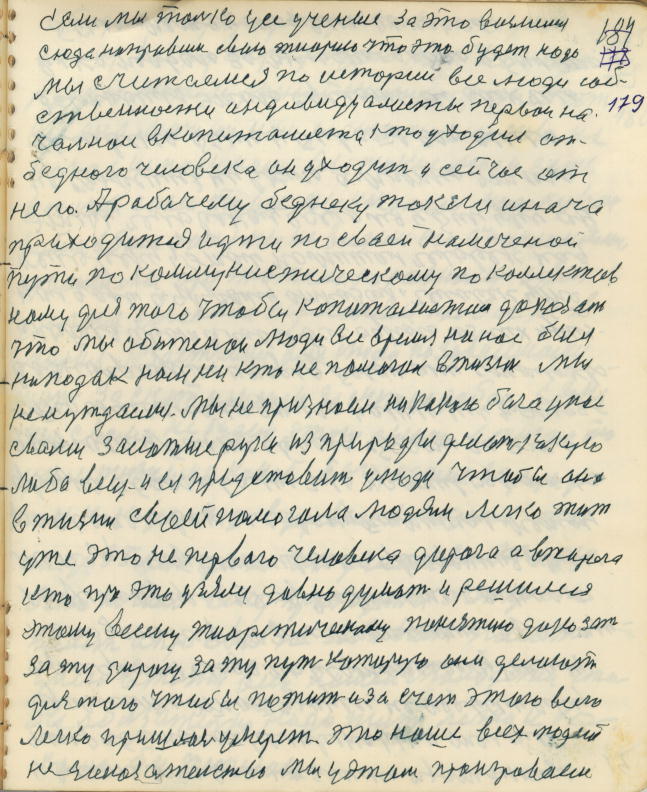 Если мы только усе ученые за это возмемся 184
сюда направим сваю тиорию что это будет надо
мы считаемся по истории все люди соб- 179
ственности индивидуалисты первои на-
чалнои вкопиталиста кто уходил от
бедного человека он уходит и сейчас от
него. А рабачему бедняку также иначе
приходится идти по сваей намеченой
пути по коммунистическому по коллектив
ному для того чтобы копиталистам доказат
что мы обиженаи люди все время на нас был
нападак нам ни кто не помогал вжизни мы
не нуждаемся. Мы не признаем никакого бога у нас
сваи залотые руки из природы делают какую
либа вещ и ея представит у люди чтобы она
вжизни своей помогала людям легко жит
уже это не первого человека дорога а
кто про это узяли давно думат и решился
этому всему тиоретическому понятию доказат
за эту дарогу за эту пут которую они делают
для того чтобы пожит и за счет этого всего
легко пришлос умерет это наше всех людей
не доказателство мы у этом проигроваем